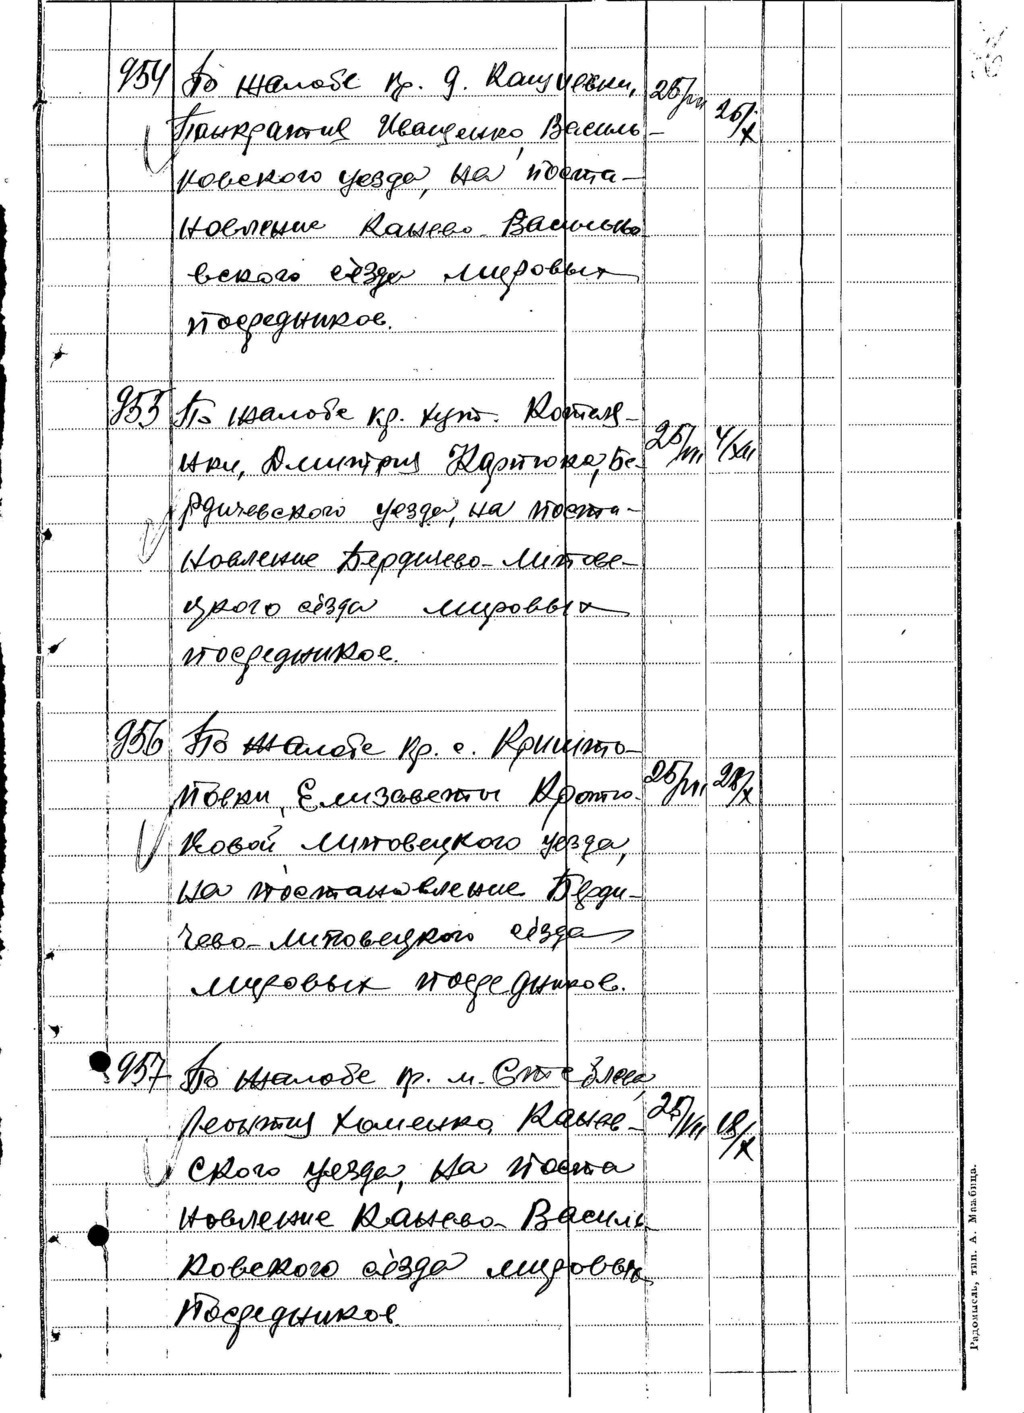 954 По жалобе кр. д.
Панкратия Иващенко, Василь-
ковского уезда, на поста-
новление Канево-Василько
вского съезда мировых
посредников.
25/VII 26/X
955 По жалобе кр. хут. Котелян-
ки, Дмитрия Бе-
рдичевского уезда, на поста-
новление Бердичево-Липове-
цкого съезда мировых
посредников.
25/VII 4/XII
956 По жалобе кр. с. Кришто-
повки, Елизаветы
Липовецкого уезда,
на постановление Берди-
чево-Липовецкого съезда
мировых посредников.
25/VII 28/X
957 По жалобе кр. м. Стеблева,
Леонтия Хоменко, Канев-
ского уезда, на поста
новление Канево-Василь
ковского съезда мировых
посредников.
25/VII 18/X
Радомысль, тип. А.